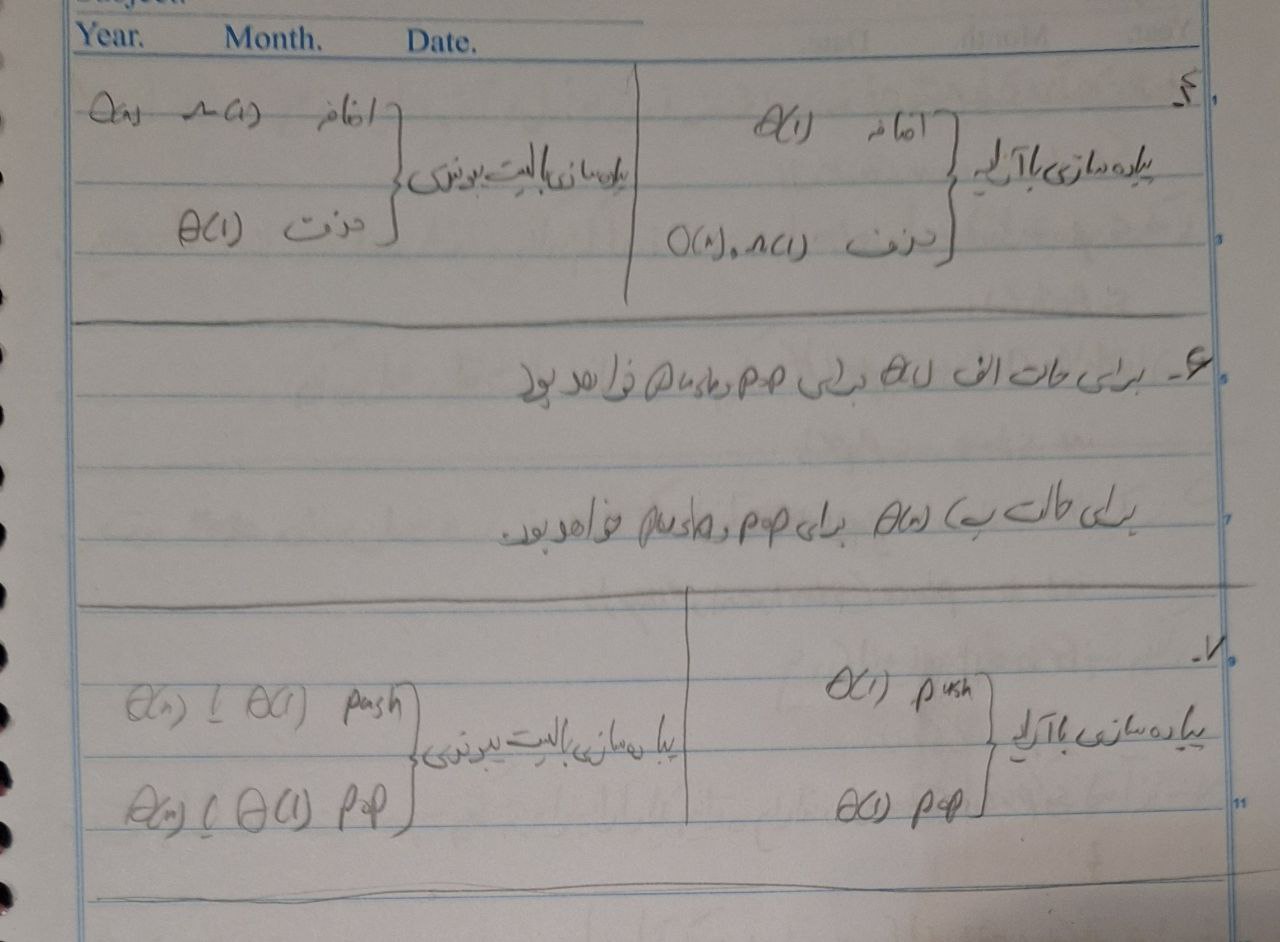 Year. Month. Date.
۲-
پیاده‌سازی با آرایه
اضافه θ(1)
حذف O(n), Ω(1)
پیاده‌سازی با لیست پیوندی
اضافه Ω(1)
حذف θ(1)
۶- برای حالت الف θ(1) برای pop و push خواهد بود
برای حالت ب θ(n) برای pop و push خواهد بود.
۷-
پیاده سازی با آرایه
push θ(1)
pop θ(1)
پیاده سازی با لیست پیوندی
push θ(1) یا θ(n)
pop θ(1) یا θ(n)
11